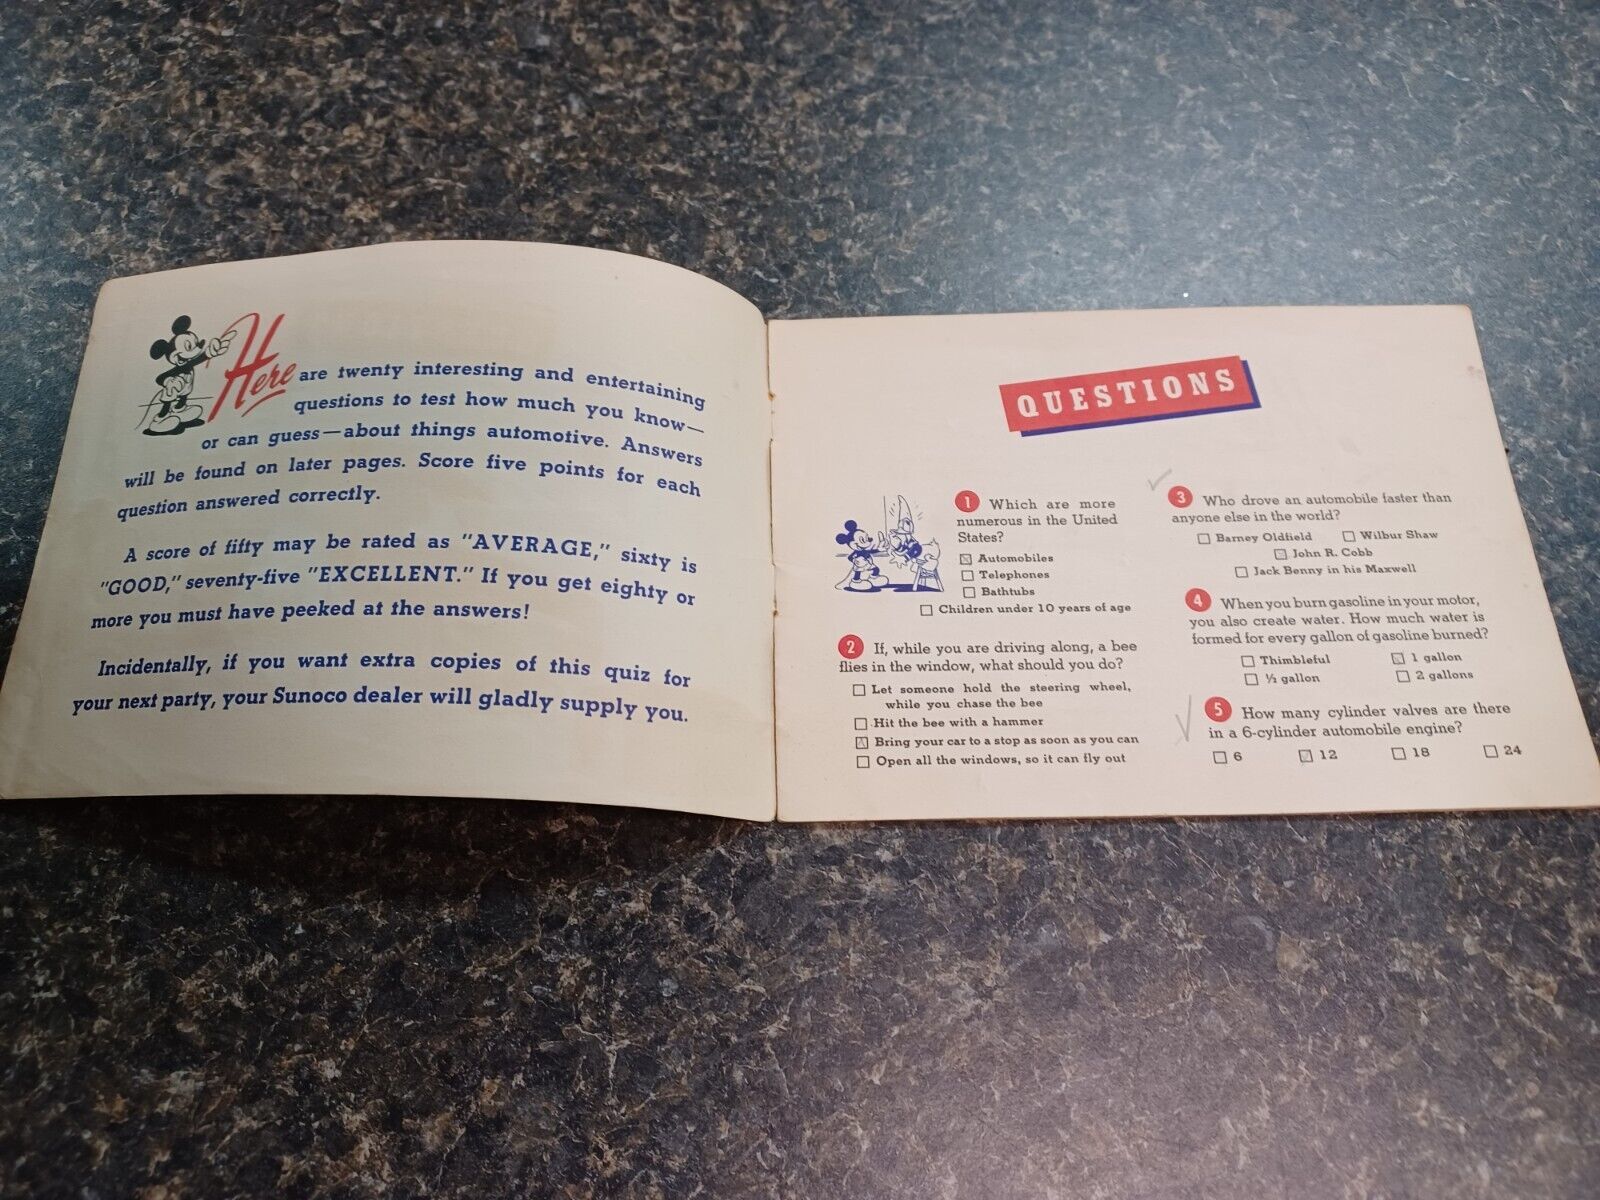 Here are twenty interesting and entertaining
questions to test how much you know—
or can guess—about things automotive. Answers
will be found on later pages. Score five points for each
question answered correctly.
A score of fifty may be rated as "AVERAGE," sixty is
"GOOD," seventy-five "EXCELLENT." If you get eighty or
more you must have peeked at the answers!
Incidentally, if you want extra copies of this quiz for
your next party, your Sunoco dealer will gladly supply you.
QUESTIONS
1 Which are more
numerous in the United
States?
Automobiles
Telephones
Bathtubs
Children under 10 years of age
2 If, while you are driving along, a bee
flies in the window, what should you do?
Let someone hold the steering wheel,
while you chase the bee
Hit the bee with a hammer
Bring your car to a stop as soon as you can
Open all the windows, so it can fly out
3 Who drove an automobile faster than
anyone else in the world?
Barney Oldfield Wilbur Shaw
John R. Cobb
Jack Benny in his Maxwell
4 When you burn gasoline in your motor,
you also create water. How much water is
formed for every gallon of gasoline burned?
Thimbleful 1 gallon
½ gallon 2 gallons
5 How many cylinder valves are there
in a 6-cylinder automobile engine?
6 12 18 24